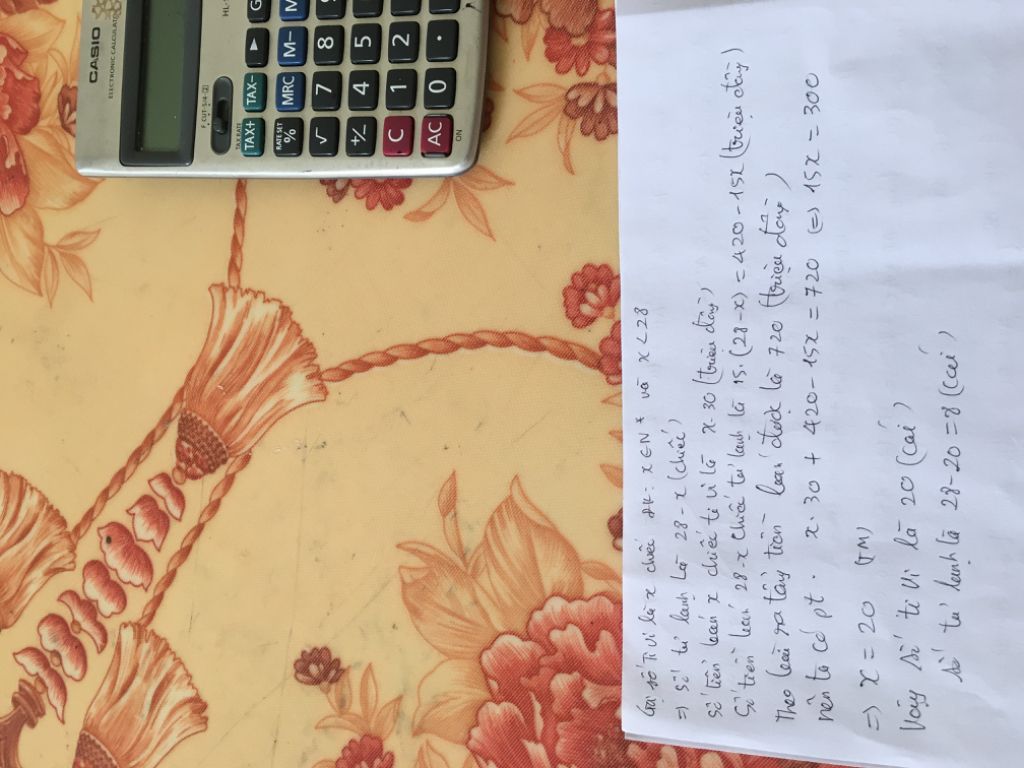 CASIO
ELECTRONIC CALCULATOR
F CUT 5/4 (2)
TAX RATE
TAX+ TAX- ▶
RATE SET
% MRC M−
√ 7 8
+/− 4 5
C 1 2
AC 0 .
ON
Gọi số Ti vi là x chiếc ĐK: x ∈ N* và x < 28
=> số tủ lạnh là 28 - x (chiếc)
Số tiền bán x chiếc ti vi là x 30 (triệu đồng)
Số tiền bán 28 - x chiếc tủ lạnh là 15. (28 - x) = 420 - 15x (triệu đồng)
Theo bài ra tổng tiền bán được là 720 (triệu đồng)
nên ta có pt. x. 30 + 420 - 15x = 720 (=) 15x = 300
=> x = 20 (TM)
Vậy số ti vi là 20 (cái)
số tủ lạnh là 28 - 20 = 8 (cái)